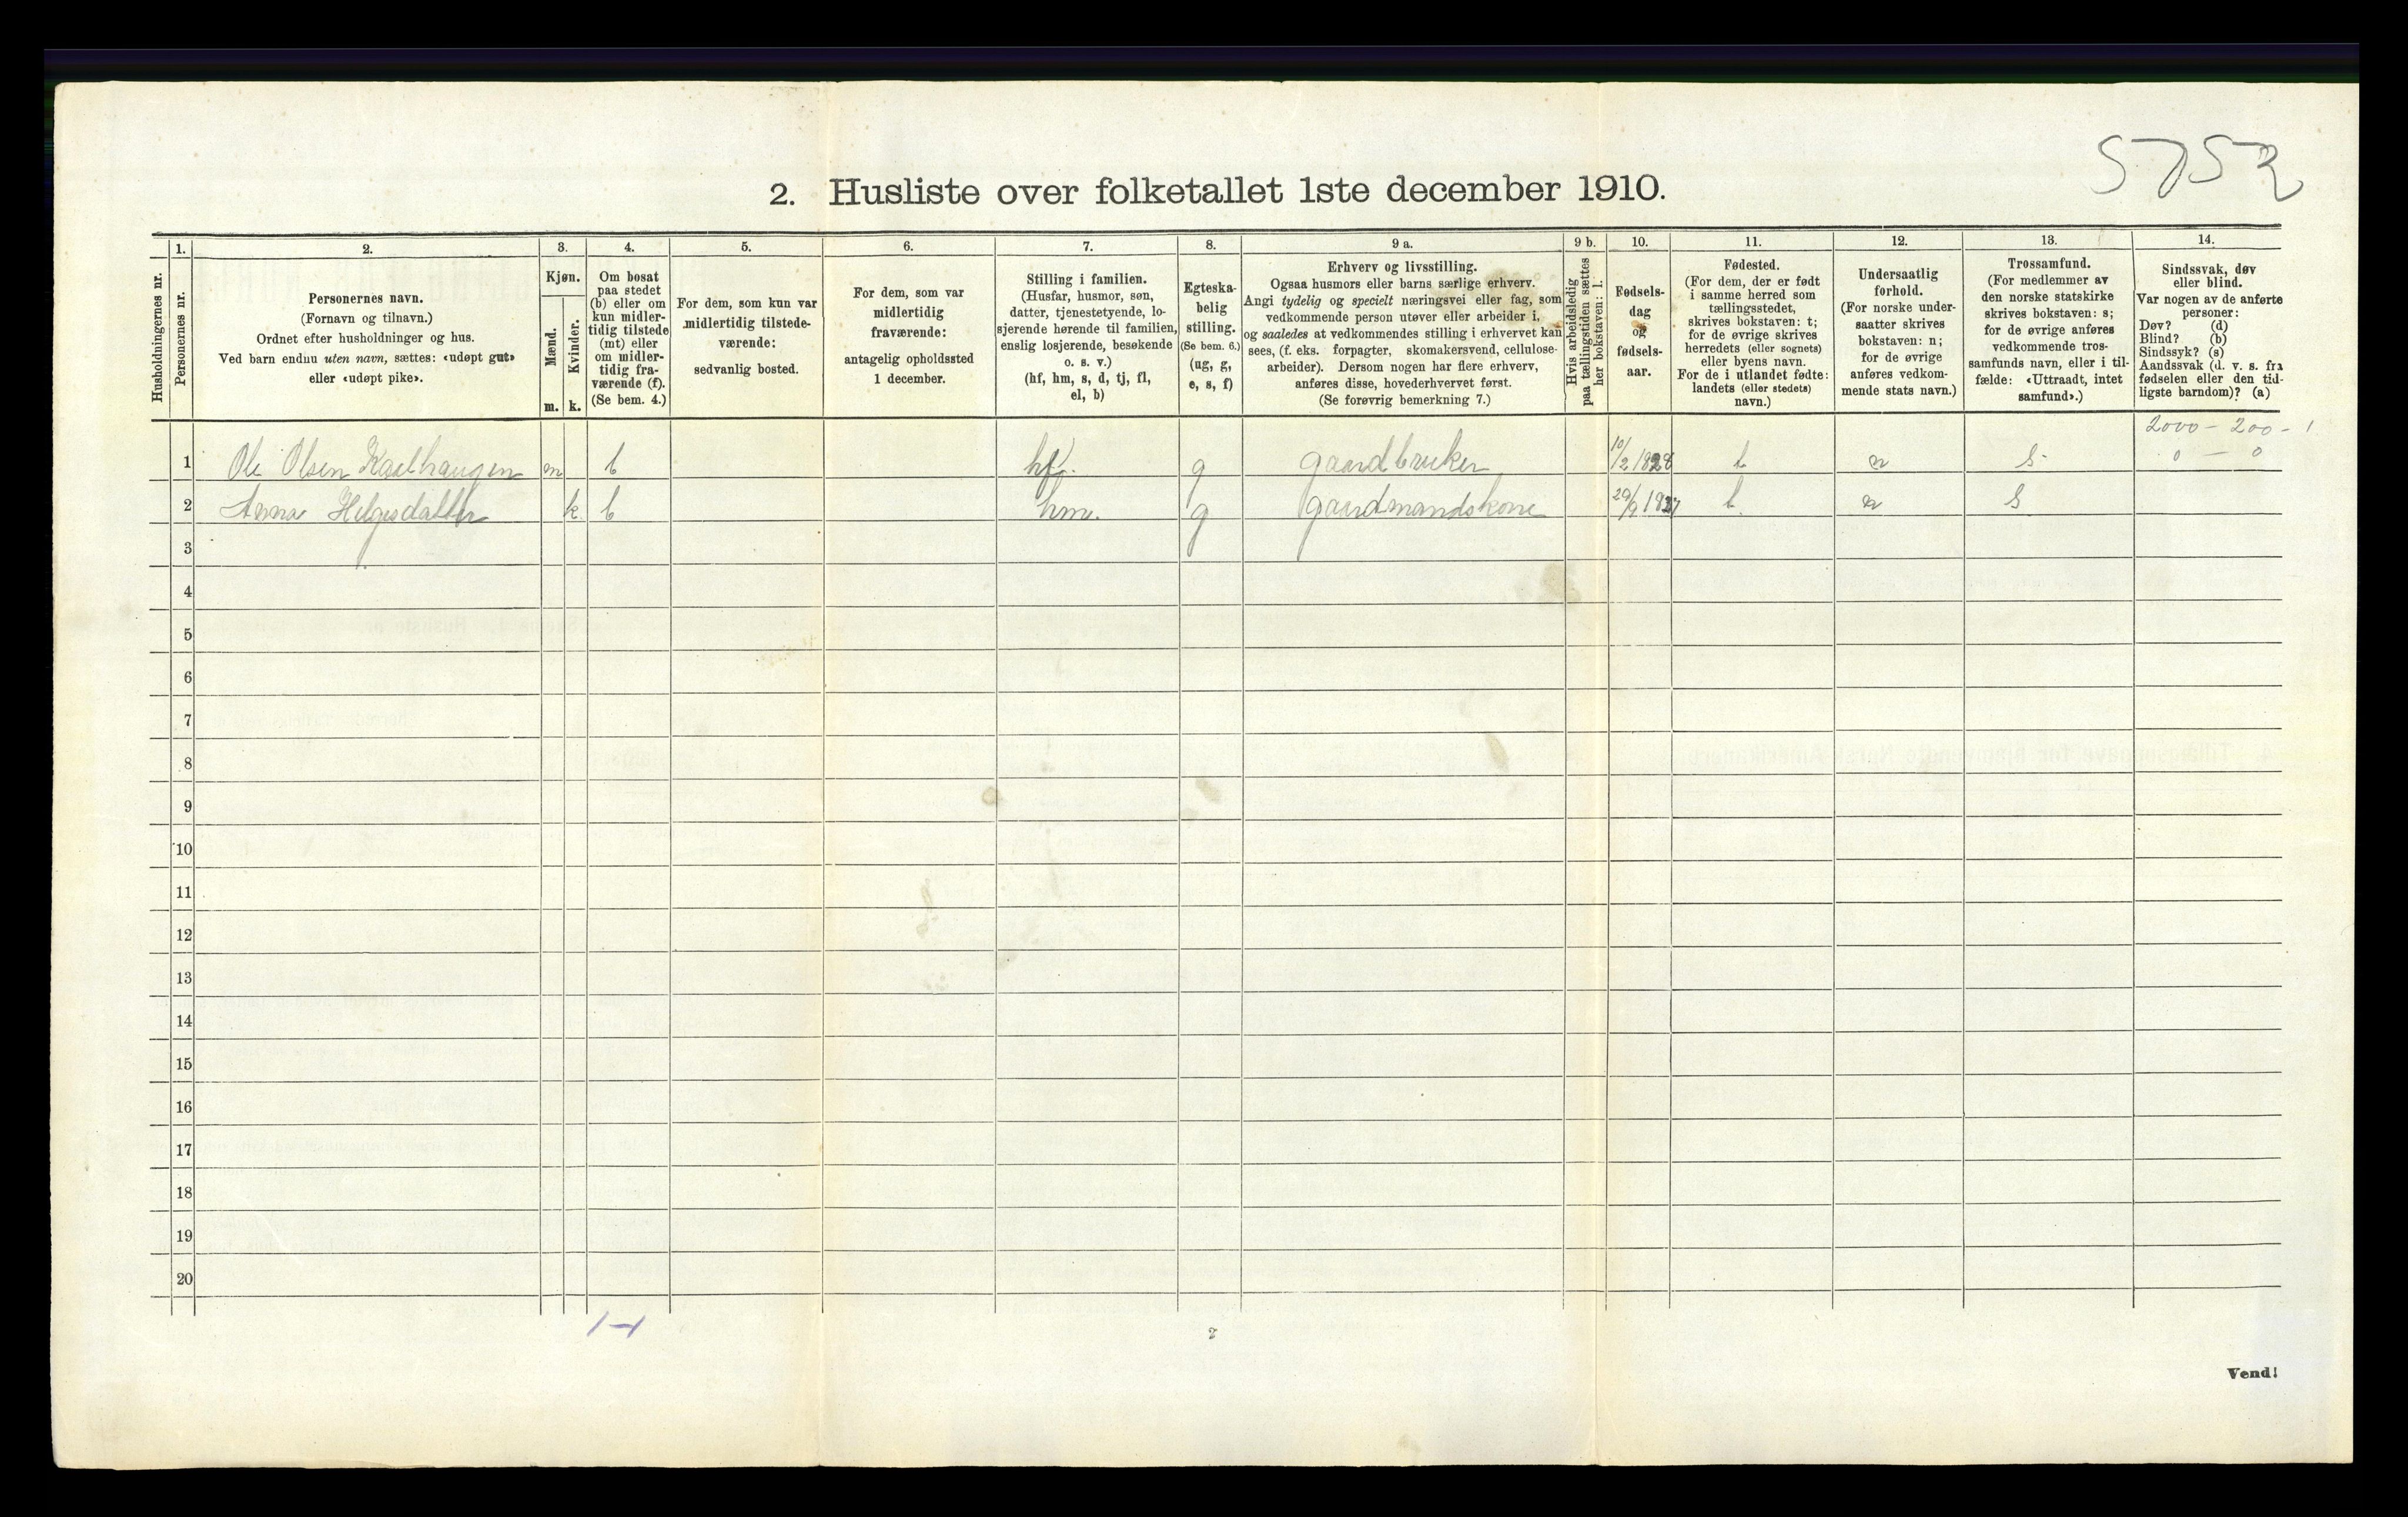 5752
2. Husliste over folketallet 1ste december 1910.
Husholdningernes nr.
1.
Personernes nr.
2.
Personernes navn.
(Fornavn og tilnavn.)
Ordnet efter husholdninger og hus.
Ved barn endnu uten navn, sættes: «udøpt gut»
eller «udøpt pike».
3.
Kjøn.
Mænd.
Kvinder.
m. k.
4.
Om bosat
paa stedet
(b) eller om
kun midler-
tidig tilstede
(mt) eller
om midler-
tidig fra-
værende (f).
(Se bem. 4.)
5.
For dem, som kun var
midlertidig tilstede-
værende:
sedvanlig bosted.
6.
For dem, som var
midlertidig
fraværende:
antagelig opholdssted
1 december.
7.
Stilling i familien.
(Husfar, husmor, søn,
datter, tjenestetyende, lo-
sjerende hørende til familien,
enslig losjerende, besøkende
o. s. v.)
(hf, hm, s, d, tj, fl,
el, b)
8.
Egteska-
belig
stilling.
(Se bem. 6.)
(ug, g,
e, s, f)
9 a.
Erhverv og livsstilling.
Ogsaa husmors eller barns særlige erhverv.
Angi tydelig og specielt næringsvei eller fag, som
vedkommende person utøver eller arbeider i,
og saaledes at vedkommendes stilling i erhvervet kan
sees, (f. eks. forpagter, skomakersvend, cellulose-
arbeider). Dersom nogen har flere erhverv,
anføres disse, hovederhvervet først.
(Se forøvrig bemerkning 7.)
9 b.
Hvis arbeidsledig
paa tællingstiden sættes
her bokstaven: l.
10.
Fødsels-
dag
og
fødsels-
aar.
11.
Fødested.
(For dem, der er født
i samme herred som
tællingsstedet,
skrives bokstaven: t;
for de øvrige skrives
herredets (eller sognets)
eller byens navn.
For de i utlandet fødte:
landets (eller stedets)
navn.)
12.
Undersaatlig
forhold.
(For norske under-
saatter skrives
bokstaven: n;
for de øvrige
anføres vedkom-
mende stats navn.)
13.
Trossamfund.
(For medlemmer av
den norske statskirke
skrives bokstaven: s;
for de øvrige anføres
vedkommende tros-
samfunds navn, eller i til-
fælde: «Uttraadt, intet
samfund».)
14.
Sindssvak, døv
eller blind.
Var nogen av de anførte
personer:
Døv? (d)
Blind? (b)
Sindssyk? (s)
Aandssvak (d. v. s. fra
fødselen eller den tid-
ligste barndom)? (a)
2000 - 200 - 1
0 - 0
1 Ole Olsen Kaalhaugen m b hf. g gaardbruker 10/2 1828 t n s
2 Anna Helgesdatter k b hm. g gaardmandskone 29/9 1837 t n s
3
4
5
6
7
8
9
10
11
12
13
14
15
16
17
18
19
20
1-1
2
Vend!